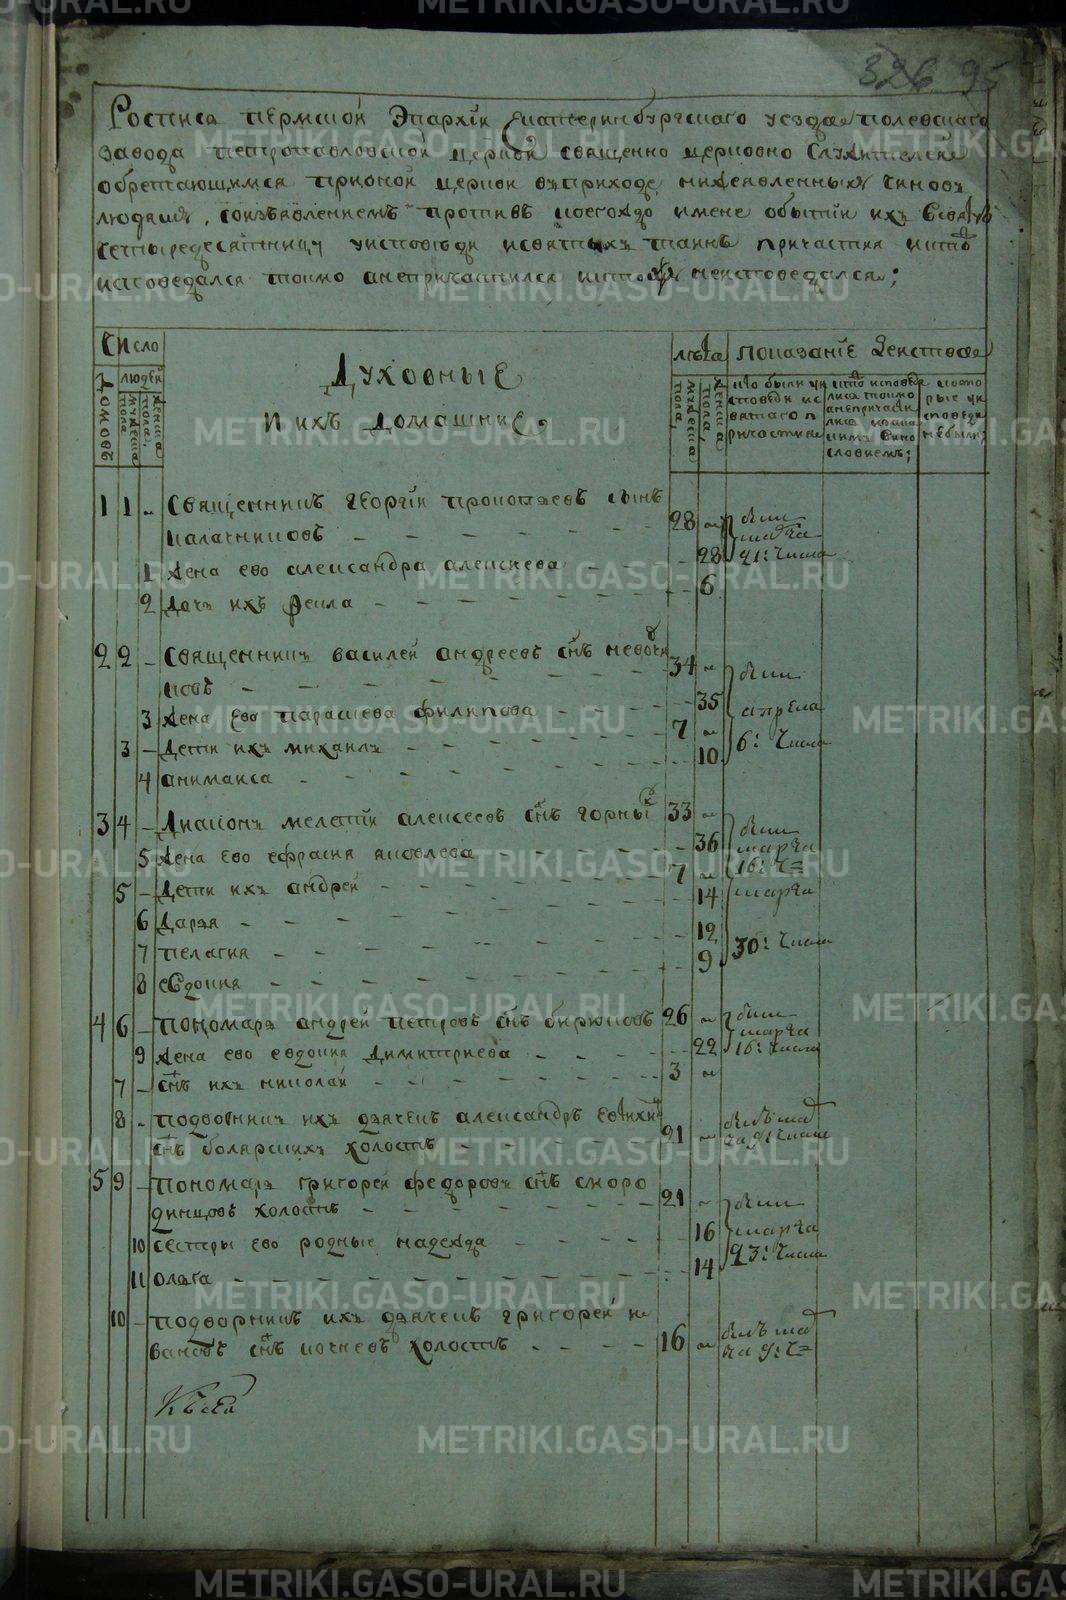 326 95
Роспись пермской Эпархіи Екатеринбургскаго уезда полевскаго
завода петропавловской церкви священно церковно служителей
обретающимся прионой церкви въприходе нижеявленныхъ чиновъ
людями, соизъявлениемъ противъ коегождо имене обытіи ихъ Васвятую
четыредесятницу уисповеди исвятыхъ таинъ причастия икто
исповедался токмо анепричастился икто неисповедался;
Число
людей
дворовъ
мужеска пола
женска пола,
Духовные
и ихъ домашние,
лѣта
мужеска пола,
женска пола,
показаніе Действа
кто были уи
споведи ис
вятаго п
ричастия
кто исповеда
лися токмо
анепричасти
лися
винословиемъ;
кото
рые уи
споведи
небыли;
1 1 Священникъ георгіи прокопьевъ сынъ
калачниковъ 28
были
марта
21: числа
1 жена ево александра алексиева 28
2 дочь ихъ фекла 6
2 2 Священникъ василей андреевъ снъ
ковъ 34
были
апреля
6: числа
3 жена ево парасцева филипова 35
3 Дети ихъ михаилъ 7
4 анимаиса 10
3 4 Диаконъ мелетіи алексеевъ снъ горныхъ 33
были
марта
16: ч=
5 жена ево ефрасия яковлева 36
5 Дети ихъ андрей 7
6 Дарья 14
марта
30: числа
7 пелагия 12
8 евдокия 9
4 6 пономарь андрей петровъ снъ бирюковъ 26
были
марта
16: числа
9 жена ево евдокия Димитриева 22
7 снъ ихъ николай 3
8 подворникъ ихъ дьячекъ александръ евтихи
снъ боярскихъ холостъ 21
былъ мар
та 9: числа
5 9 пономарь григорей федоровъ снъ скоро
динцовъ холостъ 21
были
марта
23: числа
10 сестры ево родные надежда 16
11 ольга 14
10 подворникъ ихъ дьячекъ григорей и
вановъ снъ кочневъ холостъ 16
былъ мар
та 9: ч=
METRIKI.GASO-URAL.RU